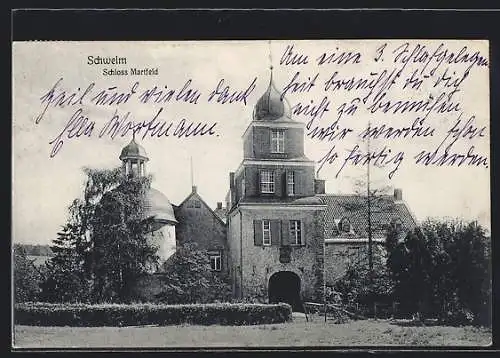 Schwelm
Schloss Martfeld
Um eine 3. Schlafgelegen
heit brauchst du dich
nicht zu bemühen
wir werden schon
so fertig werden.
Heil und vielen Dank
Ella Wortmann.